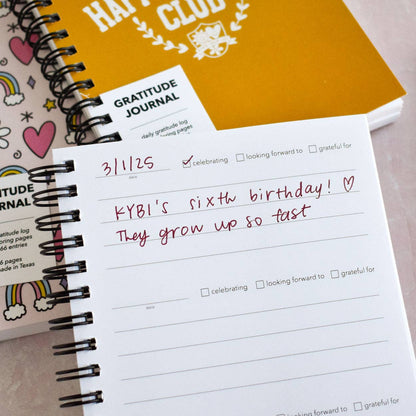 HAPP
CLUB
GRATITUDE
JOURNAL
daily gratitude log
GRATITUDE
JOURNAL
gratitude log
oring pages
66 entries
6 pages
made in Texas
3/1/25 celebrating looking forward to grateful for
DATE
KYB1's sixth birthday! ♡
They grow up so fast
celebrating looking forward to grateful for
DATE
celebrating looking forward to grateful for